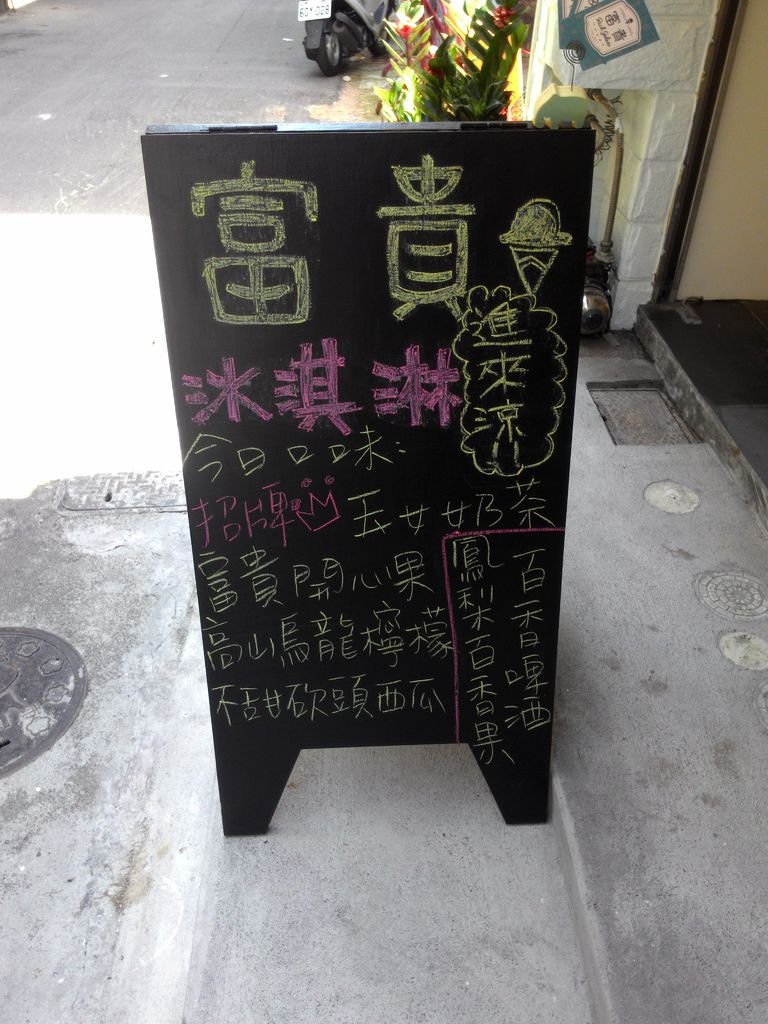 富貴
冰淇淋
進來涼
今日口味：
招牌 玉女奶茶
富貴開心果
高山烏龍檸檬
不甜砍頭西瓜
鳳梨百香果
百香啤酒
富貴